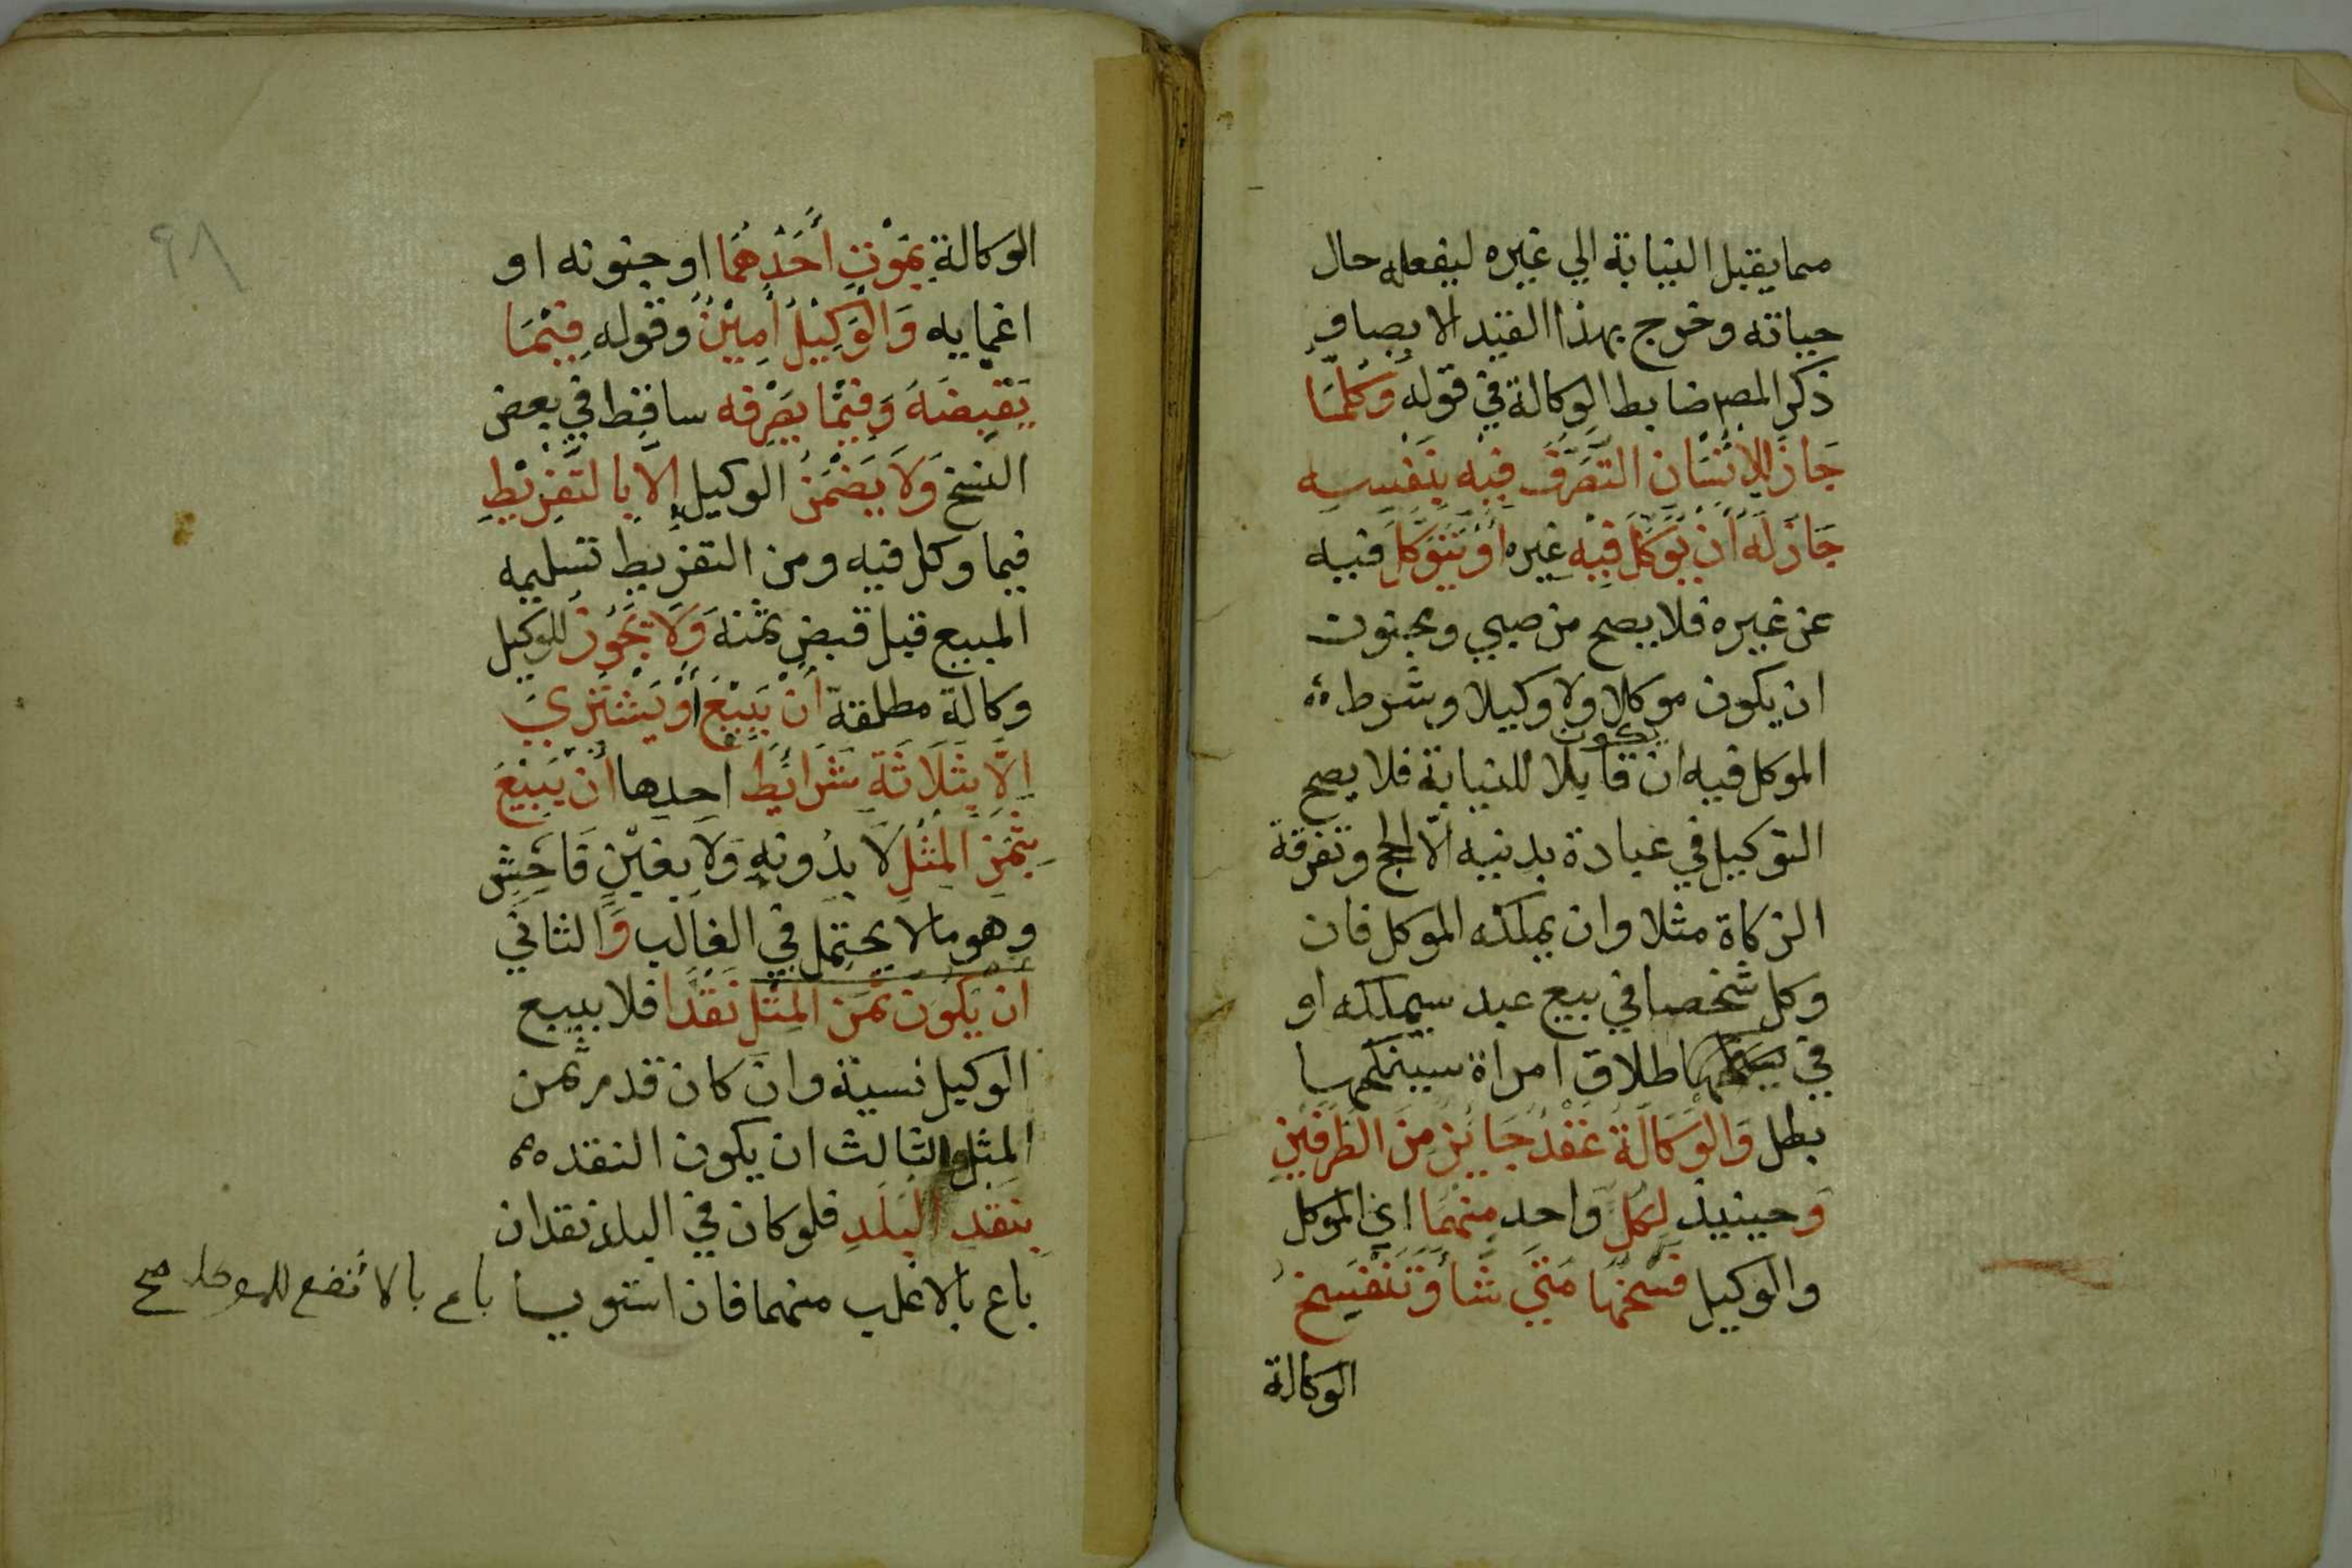 مما يقبل النيابة الي غيره ليفعله حال
حياته وخرج بهذا القيد الايصا و
ذكر المصر ضابط الوكالة في قوله وَكُلَّمَا
جَازَ لِلاِنْسَانِ التَّصَرُّفُ فِيْهِ بِنَفْسِهِ
جَازَ لَهُ أَنْ يُوَكِّلَ فِيْهِ غيره أَوْ يَتَوَكَّلَ فيه
عن غيره فلا يصح من صبي ومجنون
ان يكون موكلا ولا وكيلا وشرط
الموكل فيه ان يكون قابلا للنيابة فلا يصح
التوكيل في عبادة بدنيه الّا الحج وتفرقة
الزكاة مثلا وان يملكه الموكل فان
وكل شخصا في بيع عبد سيملكه او
في طلاق امراة سينكحها
بطل وَالْوَكَالَةُ عَقْدٌ جَايِزٌ مِنَ الطَّرَفَيْنِ
وَحينيذ لِكُلِّ وَاحِدٍ مِنْهُمَا اي الموكل
والوكيل فَسْخُهَا مَتَي شَا وَتَنْفَسِخُ
الوكالة
٩٨
الوكالة بِمَوْتِ أَحَدِهِمَا او جنونه او
اغمايه وَالْوَكِيْلُ أَمِيْنٌ وقوله فِيْمَا
يَقْبِضُهُ وَفِيْمَا يَصْرِفه ساقط في بعض
النسخ وَلاَ يَضْمَنُ الوكيل إِلاَّ بِالتَّفْرِيْطِ
فيما وكل فيه ومن التفريط تسليمه
المبيع قبل قبض ثمنه وَلَا يَجُوْزُ للوكيل
وكالة مطلقة أَنْ يَبِيْعَ أَوْ يَشْتَرِيَ
إِلَّا بِثَلَاثَةِ شَرَائِطَ احدها أَنْ يَبِيْعَ
بِثَمَنِ الْمِثْلِ لَا بِدُونِهِ وَلَا بِغَبْنٍ فَاحِشٍ
وهو ما لا يحتمل في الغالب وَالثاني
ان يَكُوْنَ ثَمَن الْمِثْلِ نَقْدًا فلا يبيع
الوكيل نسية وان كان قدر ثمن
المثل والثالث ان يكون النقد
بِنَقْدِ الْبَلَدِ فلو كان في البلد نقدان
باع بالاغلب منهما فان استويا باع بالانفع للموكل صح